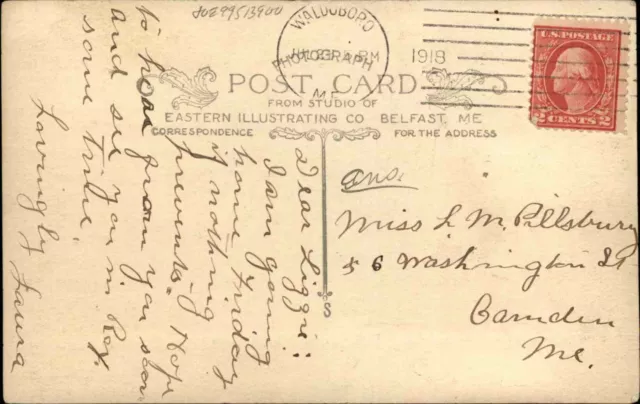 20E99513900
WALDOBORO
PM
1918
ME.
PHOTOGRAPH
POST CARD
FROM STUDIO OF
EASTERN ILLUSTRATING CO BELFAST, ME
CORRESPONDENCE
FOR THE ADDRESS
U.S. POSTAGE
2 CENTS 2
Dear Lizzie:
I am going
home Friday
if nothing
prevents. Hope
to hear from you soon
and see you in Rox.
some time.
Lovingly Laura
Ans.
Miss L. M. Pillsbury
56 Washington St
Camden
Me.
S